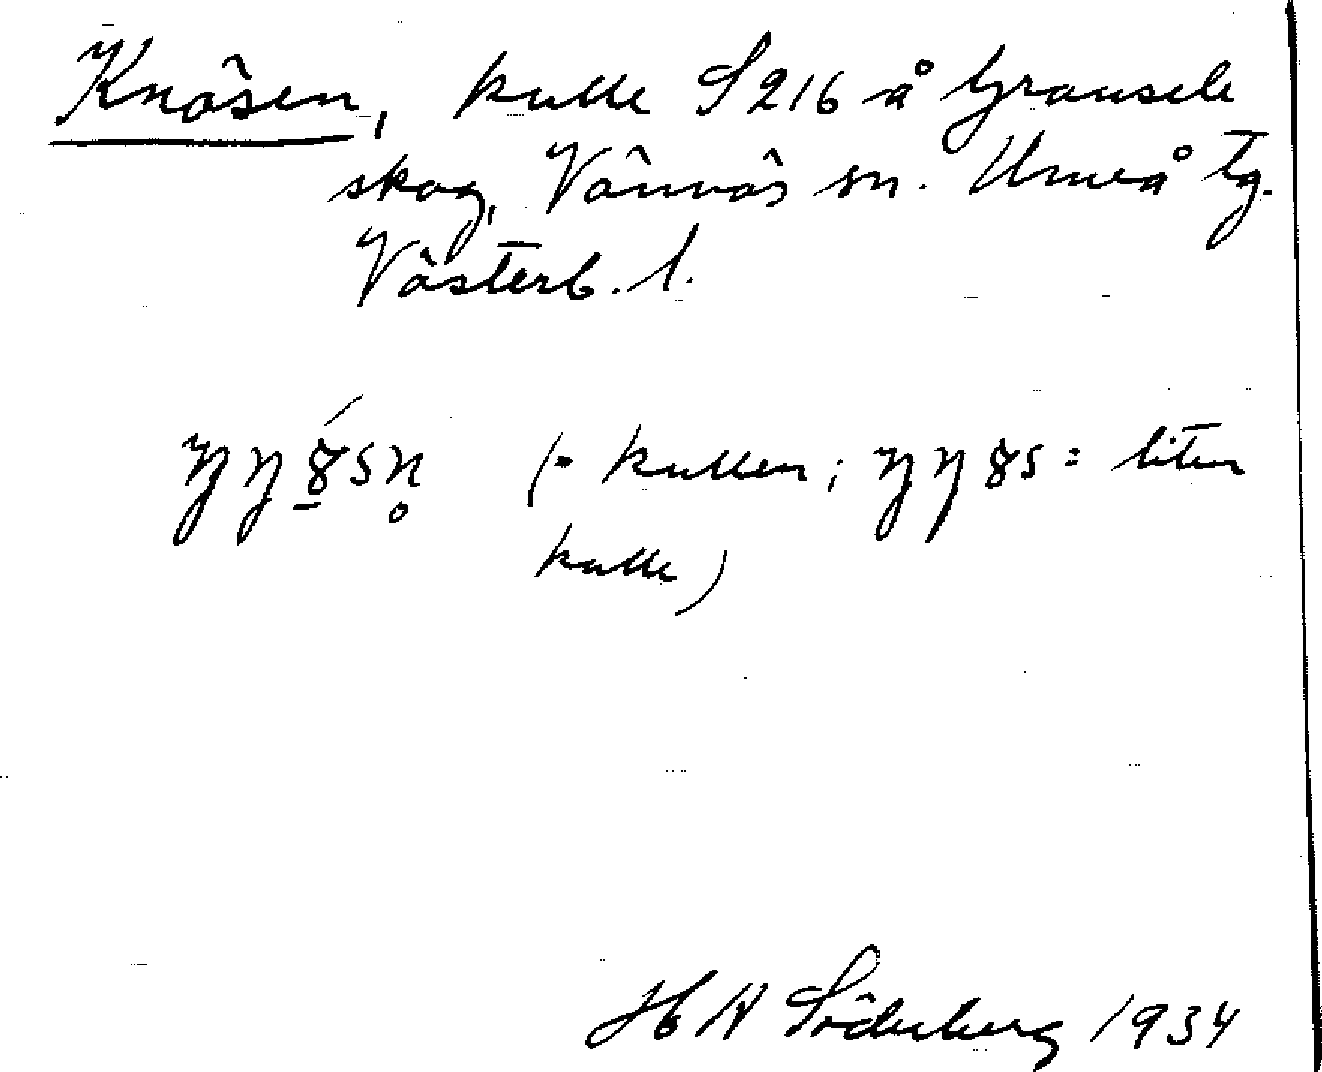 Knösen, kulle S 216 å Gransele
skog, Vännäs sn. Umeå tg.
Västerb. l.
(= kullen; = liten
kulle)
H N Söderberg 1934